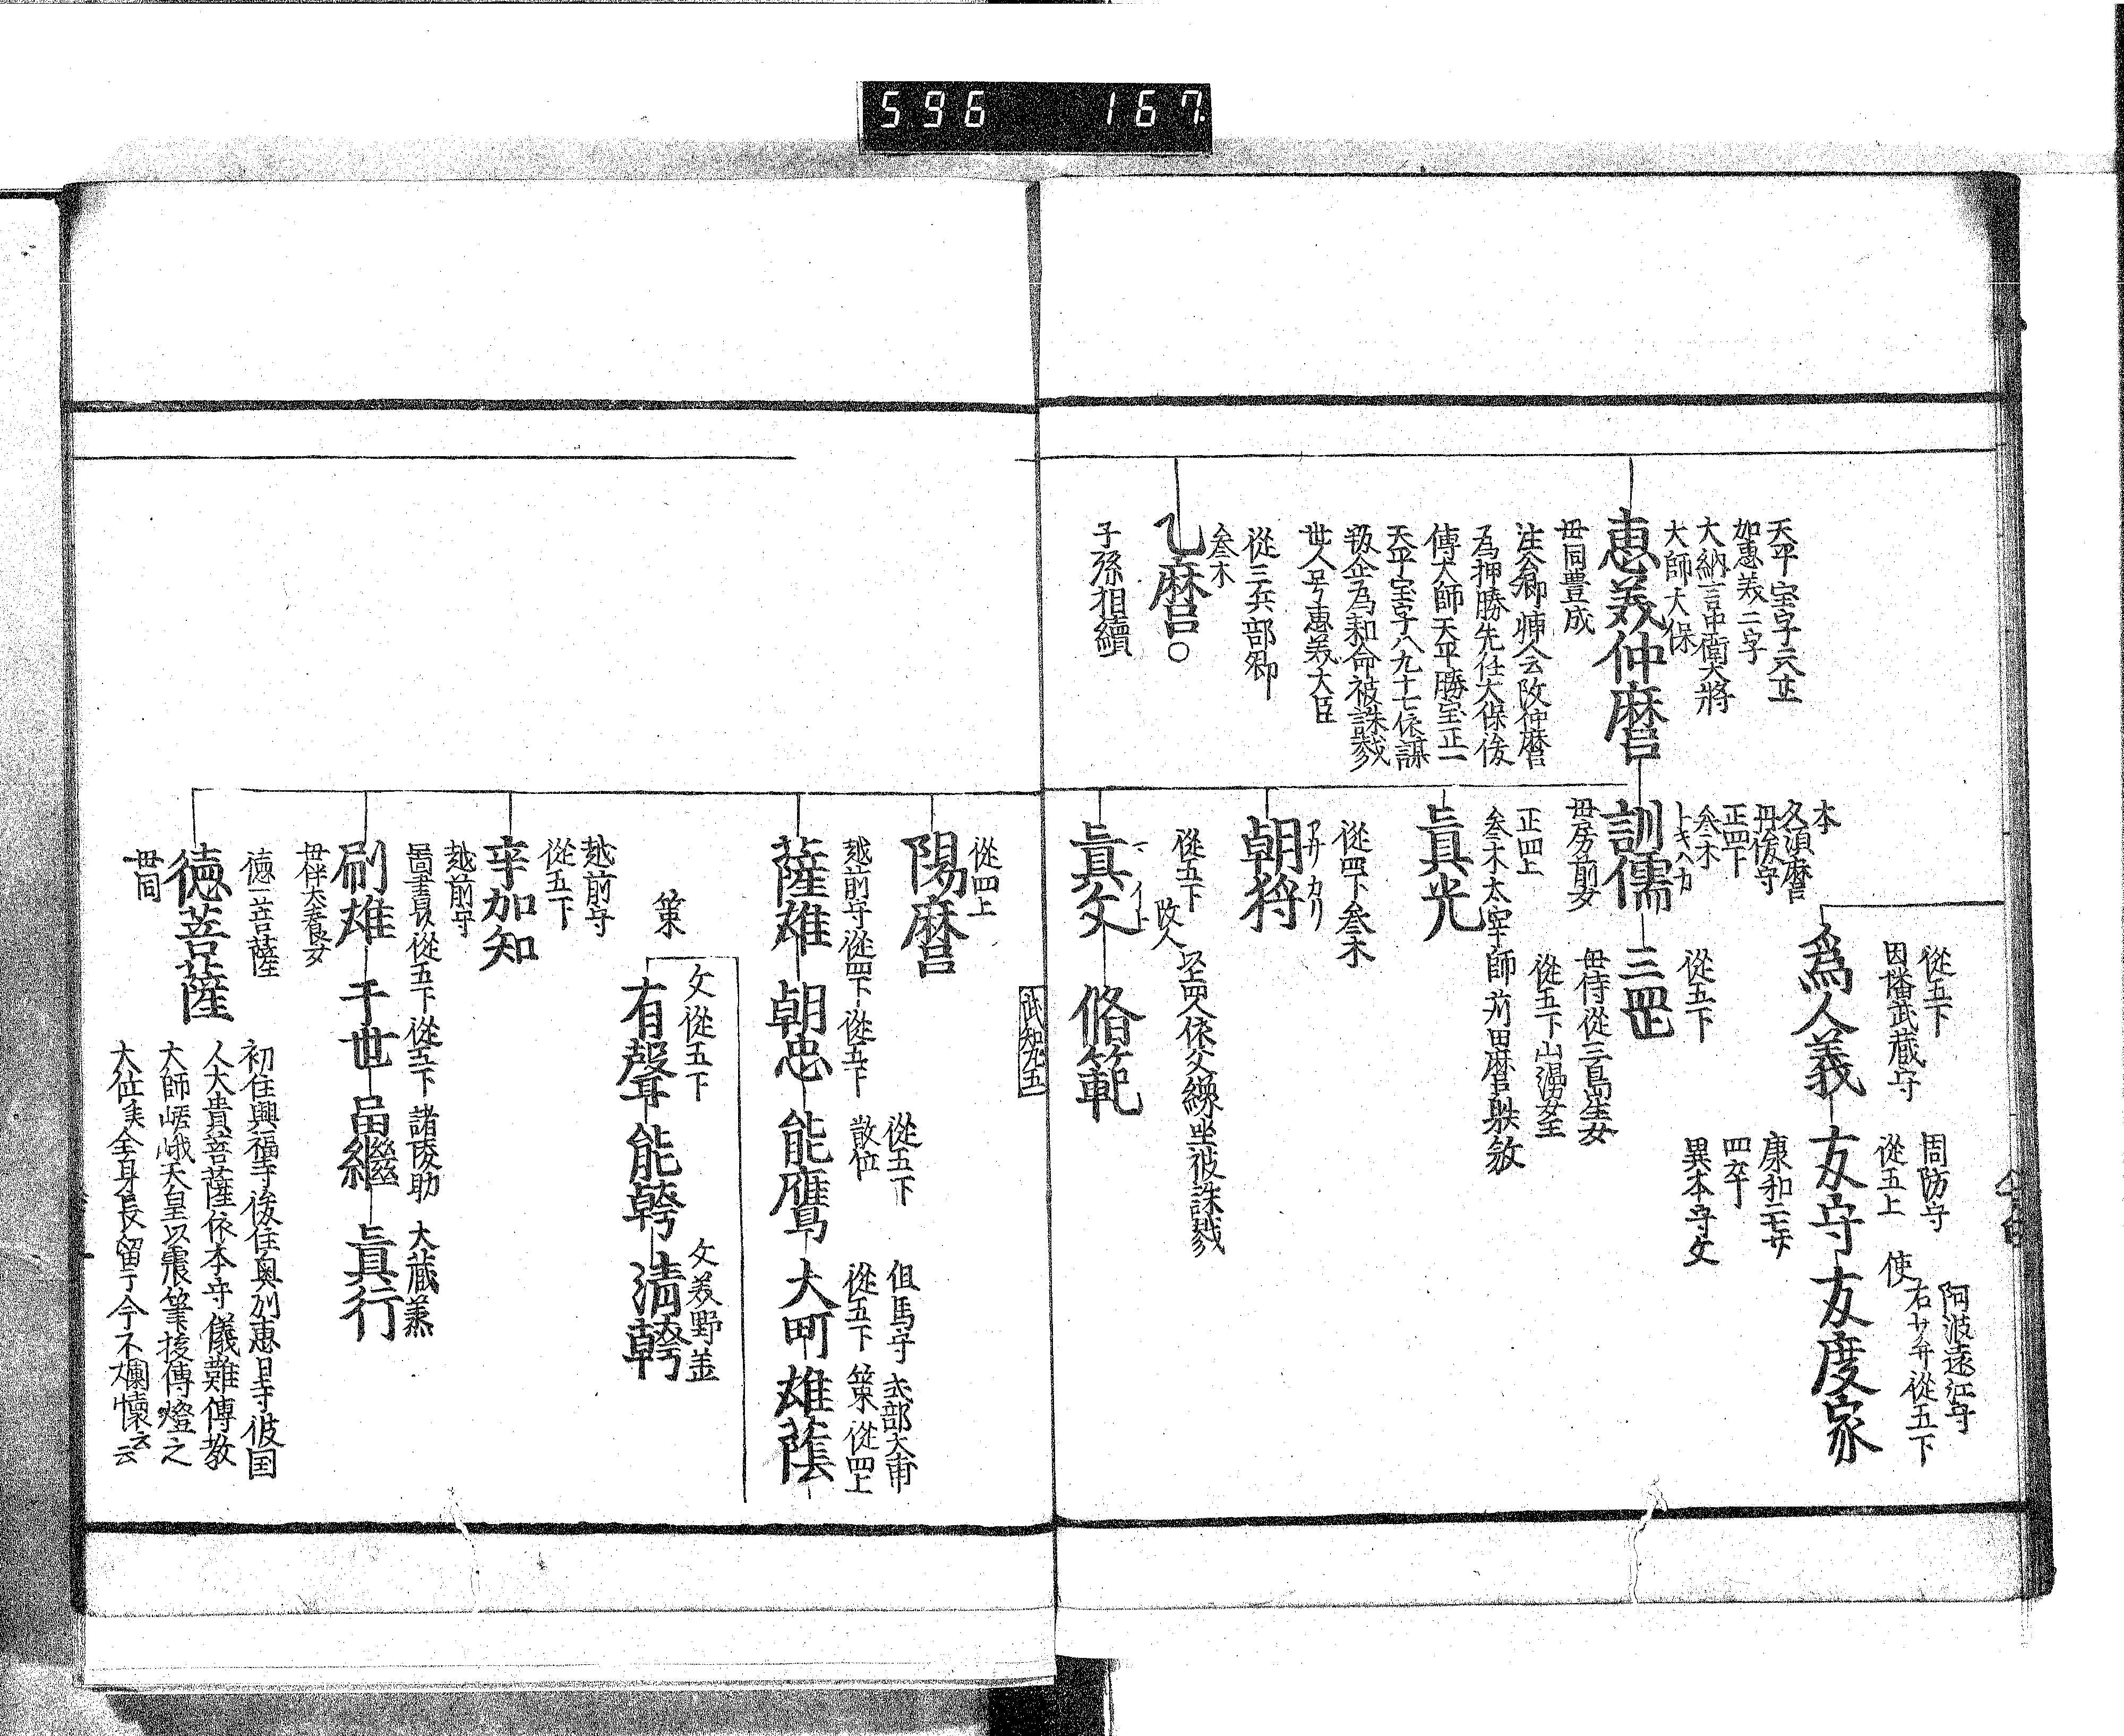 596 167
從五下
因幡武蔵守
為人義
周防守
從五上 使
康和二七廿
四卒
異本守文
友守
阿波遠江守
右少弁從五下
友度
家
天平宝字六正
加恵義二字
大納言中衛大将
大師大保
恵義仲麿
母同豊成
注公卿補人云改仲麿
為押勝先任大保後
傳大師天平勝宝正一
天平宝字八九十七依謀
叛企為勅命被誅戮
世人号恵義大臣
從三兵部卿
参木
乙麿〇
子孫相續
本
久須麿
丹後守
正四下
参木
訓儒
母房前女
從五下
三罡
母侍從三島坐女
從五下山湯女王
正四上
参木太宰師苅田麻呂射殺
真光
從四下参木
アサカリ
朝狩
從五下 改人
以上四人依父縁坐被誅戮
真文
脩範
武知九五
從四上
陽麿
越前守從四下
薩雄
從五下
朝忠
從五下
散位
能鷹
但馬守
從五下
大町
式部大甫
策 從四上
雄蔭
策
文從五下
有聲
能蒋
文美野益
清蒋
越前守
從五下
辛加知
越前守
啚書頭從五下
刷雄
母伴犬養女
從五下
千世
諸陵助
啚継
大蔵蒸
真行
徳一菩薩
徳菩薩
母同
初住興福寺後住奥列恵日寺彼国
人大貴菩薩依本守儀難傳教
大師嵯峨天皇以震筆授傳燈之
大位矣全身長留于今不爛懐云云